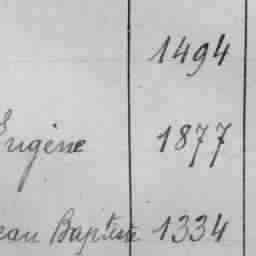 1494
Eugène 1877
ean Baptiste 1334